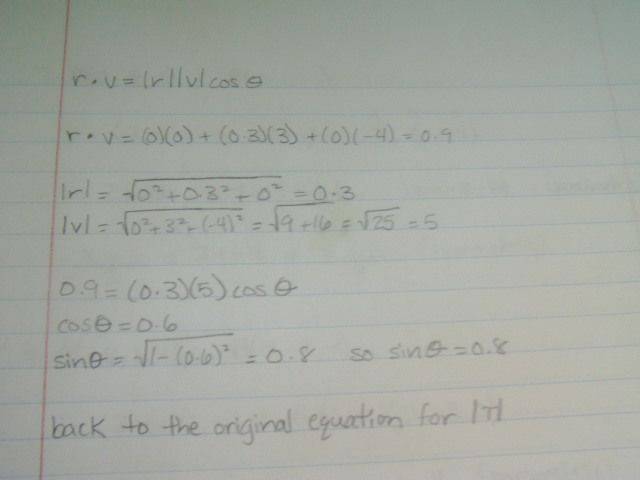 r • v = |r||v| cos θ
r • v = (0)(0) + (0.3)(3) + (0)(-4) = 0.9
|r| = √0² + 0.3² + 0² = 0.3
|v| = √0² + 3² + (-4)² = √9 + 16 = √25 = 5
0.9 = (0.3)(5) cos θ
cos θ = 0.6
sin θ = √1 - (0.6)² = 0.8 so sin θ = 0.8
back to the original equation for |τ|